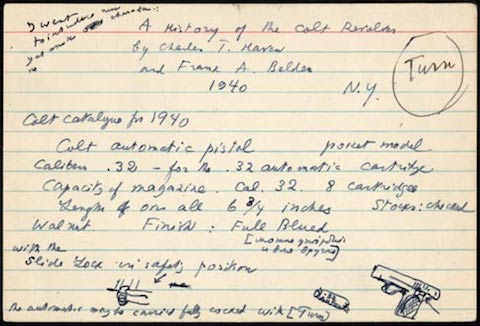 I want
to introduce
yet another character:
A History of the Colt Revolver
by Charles T. Haven
and Frank A. Belden
1940 N.Y.
Turn
Colt catalogue for 1940
Colt automatic pistol pocket model
Caliber .32 - for the .32 automatic cartridge
Capacity of magazine. Cal. 32. 8 cartridges
Length of over all 6 3/4 inches Stocks: checked
Walnut Finish: Full Blued
with the
Slide Lock in safety position
The automatic may be carried fully cocked with [Turn]